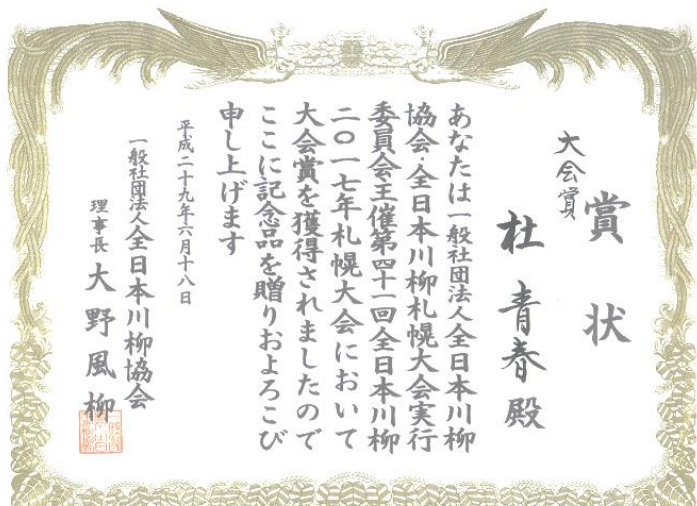 賞状
大会賞
杜青春殿
あなたは一般社団法人全日本川柳
協会・全日本川柳札幌大会実行
委員会主催第四十一回全日本川柳
二〇一七年札幌大会において
大会賞を獲得されましたので
ここに記念品を贈りおよろこび
申し上げます
平成二十九年六月十八日
一般社団法人全日本川柳協会
理事長 大野風柳